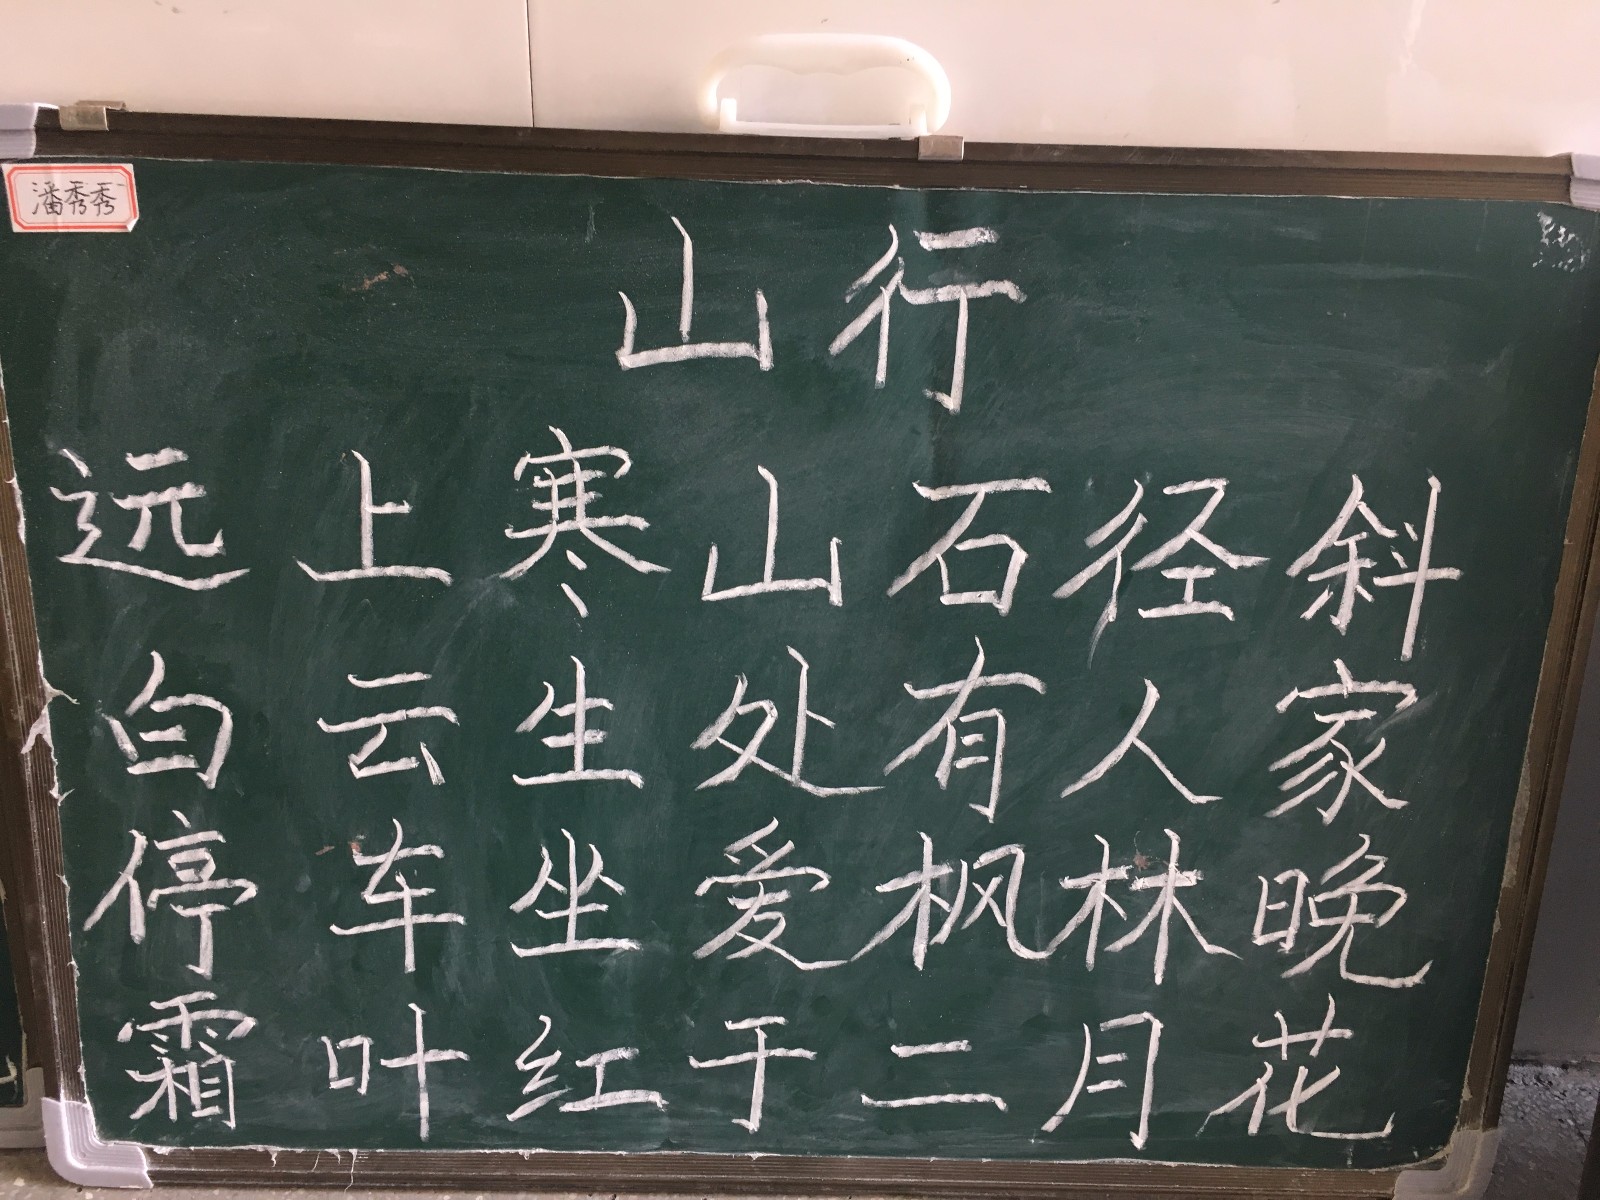 潘秀秀
山行
远上寒山石径斜
白云生处有人家
停车坐爱枫林晚
霜叶红于二月花